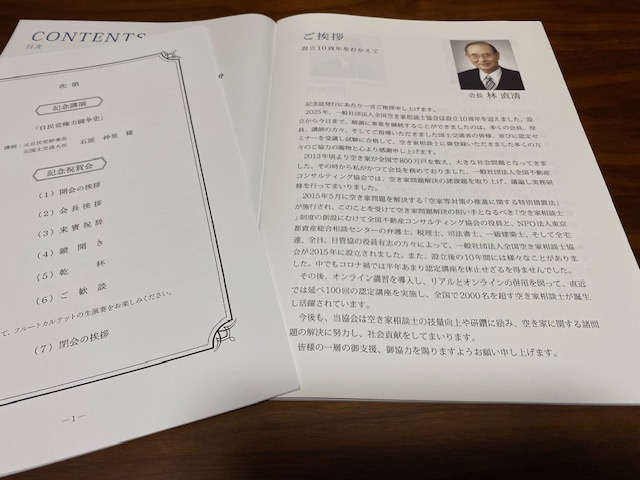 CONTENTS
目次
次 第
記念講演
「自民党権力闘争史」
講師：元自民党幹事長
元国土交通大臣
石原 伸晃 様
記念祝賀会
(1) 開会の挨拶
(2) 会長挨拶
(3) 来賓祝辞
(4) 鏡開き
(5) 乾杯
(6) ご歓談
て、フルートカルテットの生演奏をお楽しみください。
(7) 閉会の挨拶
―1―
ご挨拶
設立10周年をむかえて
会長 林 直清
記念誌発行にあたり一言ご挨拶申し上げます。
2025年、一般社団法人全国空き家相談士協会は設立10周年を迎えました。設
立から今日まで、順調に事業を継続することができましたのは、多くの会員、役
員、講師の方々、そしてご指導いただきました国土交通省の皆様、並びに認定セ
ミナーを受講し試験に合格して、空き家相談士に登録いただきました多くの方
々のご協力の賜物と心より感謝申し上げます。
2013年頃より空き家が全国で800万戸を数え、大きな社会問題となってきま
した。その時から私がかつて会長を務めておりました、一般社団法人全国不動産
コンサルティング協会では、空き家問題解決の諸課題を取り上げ、議論し実務研
修を行ってまいりました。
2015年5月に空き家問題を解決する「空家等対策の推進に関する特別措置法」
が施行され、このことを受けて空き家問題解決の担い手となるべき「空き家相談士
」制度の創設にむけて全国不動産コンサルティング協会の役員と、NPO法人東京
都資産総合相談センターの弁護士、税理士、司法書士、一級建築士、そして全宅
連、全日、日管協の役員有志の方々によって、一般社団法人全国空き家相談士協
会が2015年に設立されました。また、設立後の10年間には様々なことがありまし
た。中でもコロナ禍では半年あまり認定講座を休止せざるを得ませんでした。
その後、オンライン講習を導入し、リアルとオンラインの併用を図って、直近
では延べ100回の認定講座を実施し、全国で2000名を超す空き家相談士が誕生
し活躍されています。
今後も、当協会は空き家相談士の技量向上や研鑽に励み、空き家に関する諸問
題の解決に努力し、社会貢献をしてまいります。
皆様の一層の御支援、御協力を賜りますようお願い申し上げます。